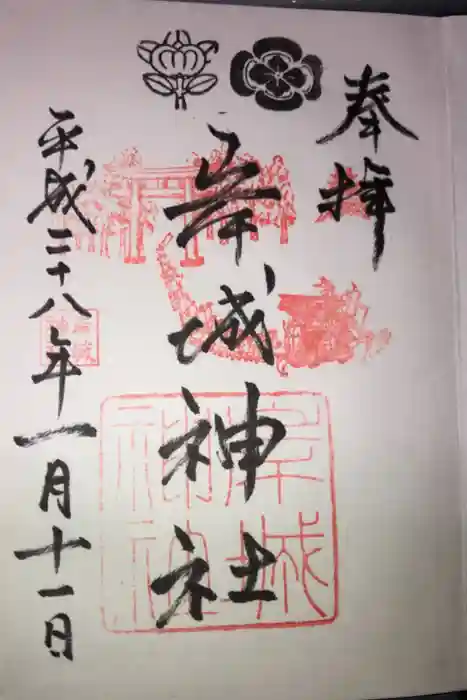 奉拝
岸城神社
平成二十八年一月十一日
岸城
神社